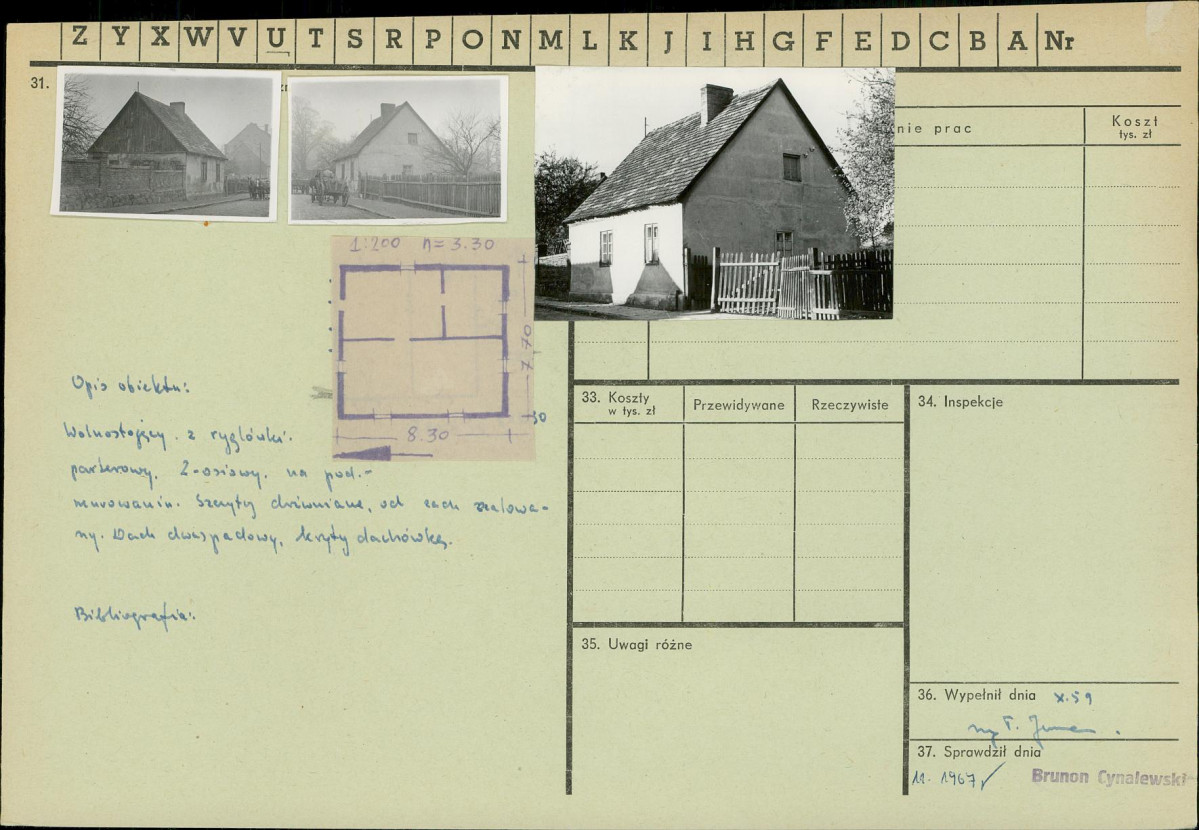 Z Y X W V U T S R P O N M L K J I H G F E D C B A Nr
31.
nie prac
Koszt
tys. zł
1:200 n=3.30
7.70
30
8.30
Opis obiektu:
Wolnostojący. z ryglówki.
parterowy, 2-osiowy, na pod-
murowaniu. Szczyty drewniane, od zach
ny. Dach dwuspadowy, kryty dachówką.
Bibliografia:
33. Koszty
w tys. zł
Przewidywane
Rzeczywiste
34. Inspekcje
35. Uwagi różne
36. Wypełnił dnia X.59
37. Sprawdził dnia
11. 1967
Brunon Cynalewski